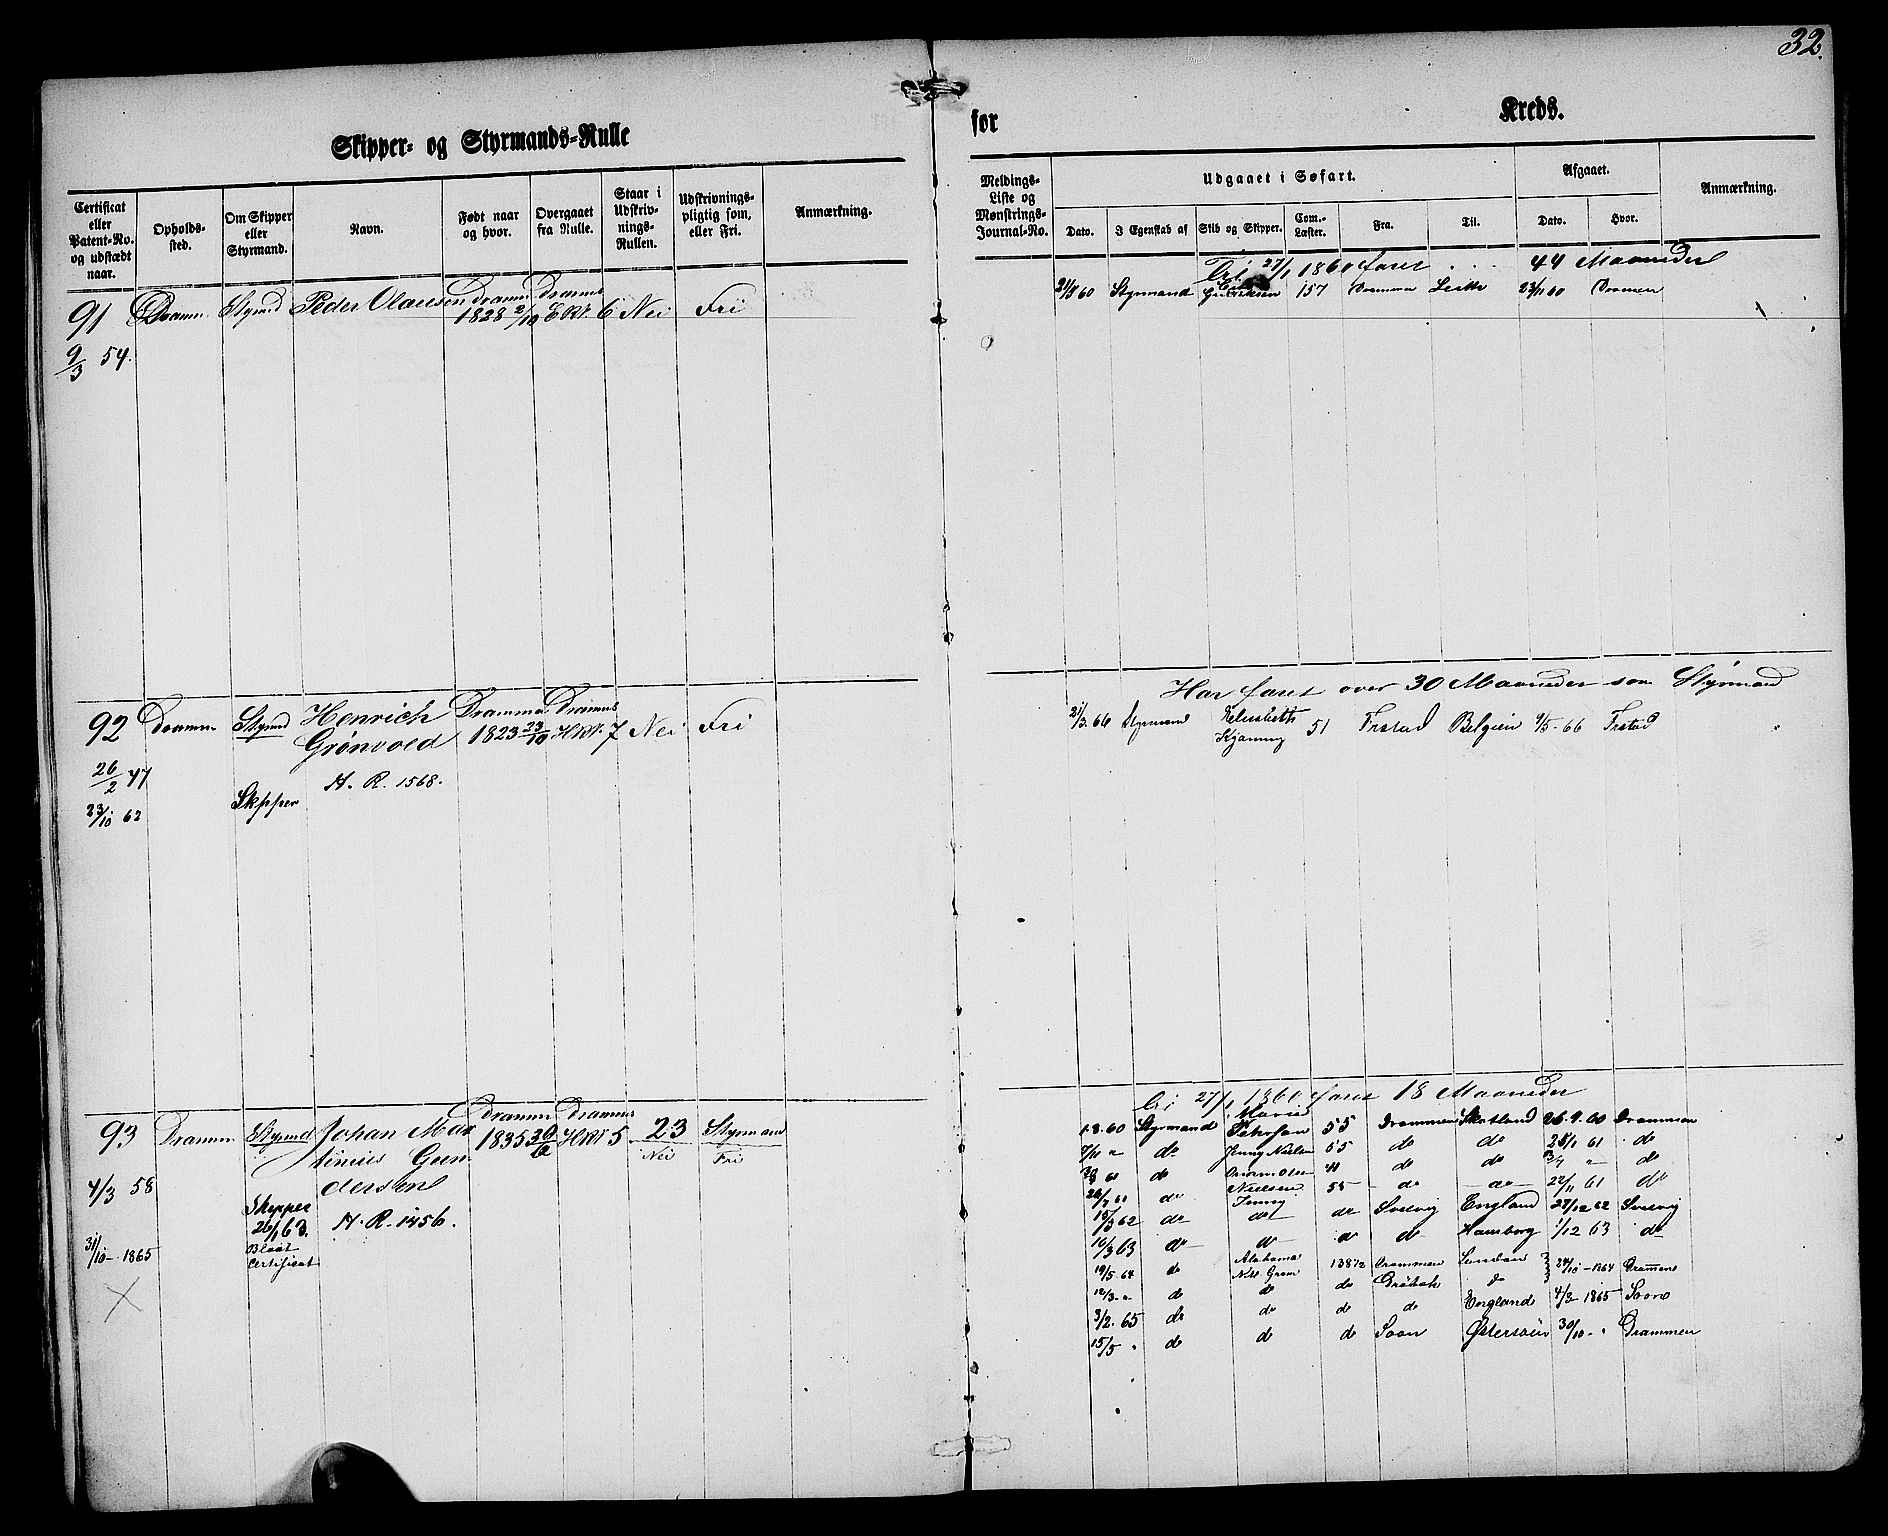 32.
Skipper- og Styrmands-Rulle
for Kreds.
Certificat eller Patent-No. og udstædt naar. Opholds-sted. Om Skipper eller Styrmand. Navn. Født naar og hvor. Overgaaet fra Rulle. Staar i Udskriv-nings-Rullen. Udskrivnings-pligtig som, eller Fri. Anmærkning.
Meldings-Liste og Mønstrings-Journal-No. Udgaaet i Søfart. Afgaaet. Anmærkning.
Dato. I Egenskab af Skib og Skipper. Com.-Læster. Fra. Til. Dato. Hvor.
91 Dramn Styrmd Peder Olausen Dramn 1828 2/10 Dramns 6 Nei Fri
9/3 54.
27/1 1860 faret . . . 44 Maaneder
21/3 60 Styrmand 157 Drammen Leith 23/11 60 Dramen
92 Dramn Styrmd Henrich Grønvold Dramn 1823 23/10 Dramns HRt. 7 Nei Fri
26/2 47
23/10 62 Skipper H. R. 1568.
Har faret over 30 Maaneder som Styrmand
21/3. 66 Styrmand Elisabeth 51 Frstad Belgien 9/5 - 66 Frstad
93 Dramn Styrmd Johan Martinius Gundersen Dramn 1835 Dramns HRt 5 23 Nei Styrmand Fri
4/3 58
Skipper 26/1 63. H. R. 1456.
31/10 - 1865 Blaat Certifikat
27/1 1860 faret 18 Maaneder
1.3.60 Styrmand Marie Petersen 55 Drammen Skotland 26.9.60 Drammen
7/11 " do Jenny Nielsen 55 do do 28/1 61 do
61 do Olsen do do " do
26/7 61 do Nielsen Jenny 55 do do 22/11 61 do
15/3 62 do do do Svelvig England 28/12 62 Svelvig
16/3 63 do do do do Hamborg 1/12 63 do
19/5. 64 do Alabama Nils Gram 138 1/2 Drammen London 24/10 - 1864 Drammen
12/8 - " do do do Drøbak do
3/2. 65 do do do do England 4/3 - 1865 Soon
15/5 " do do do Soon Østersøen 30/10 - " Drammen